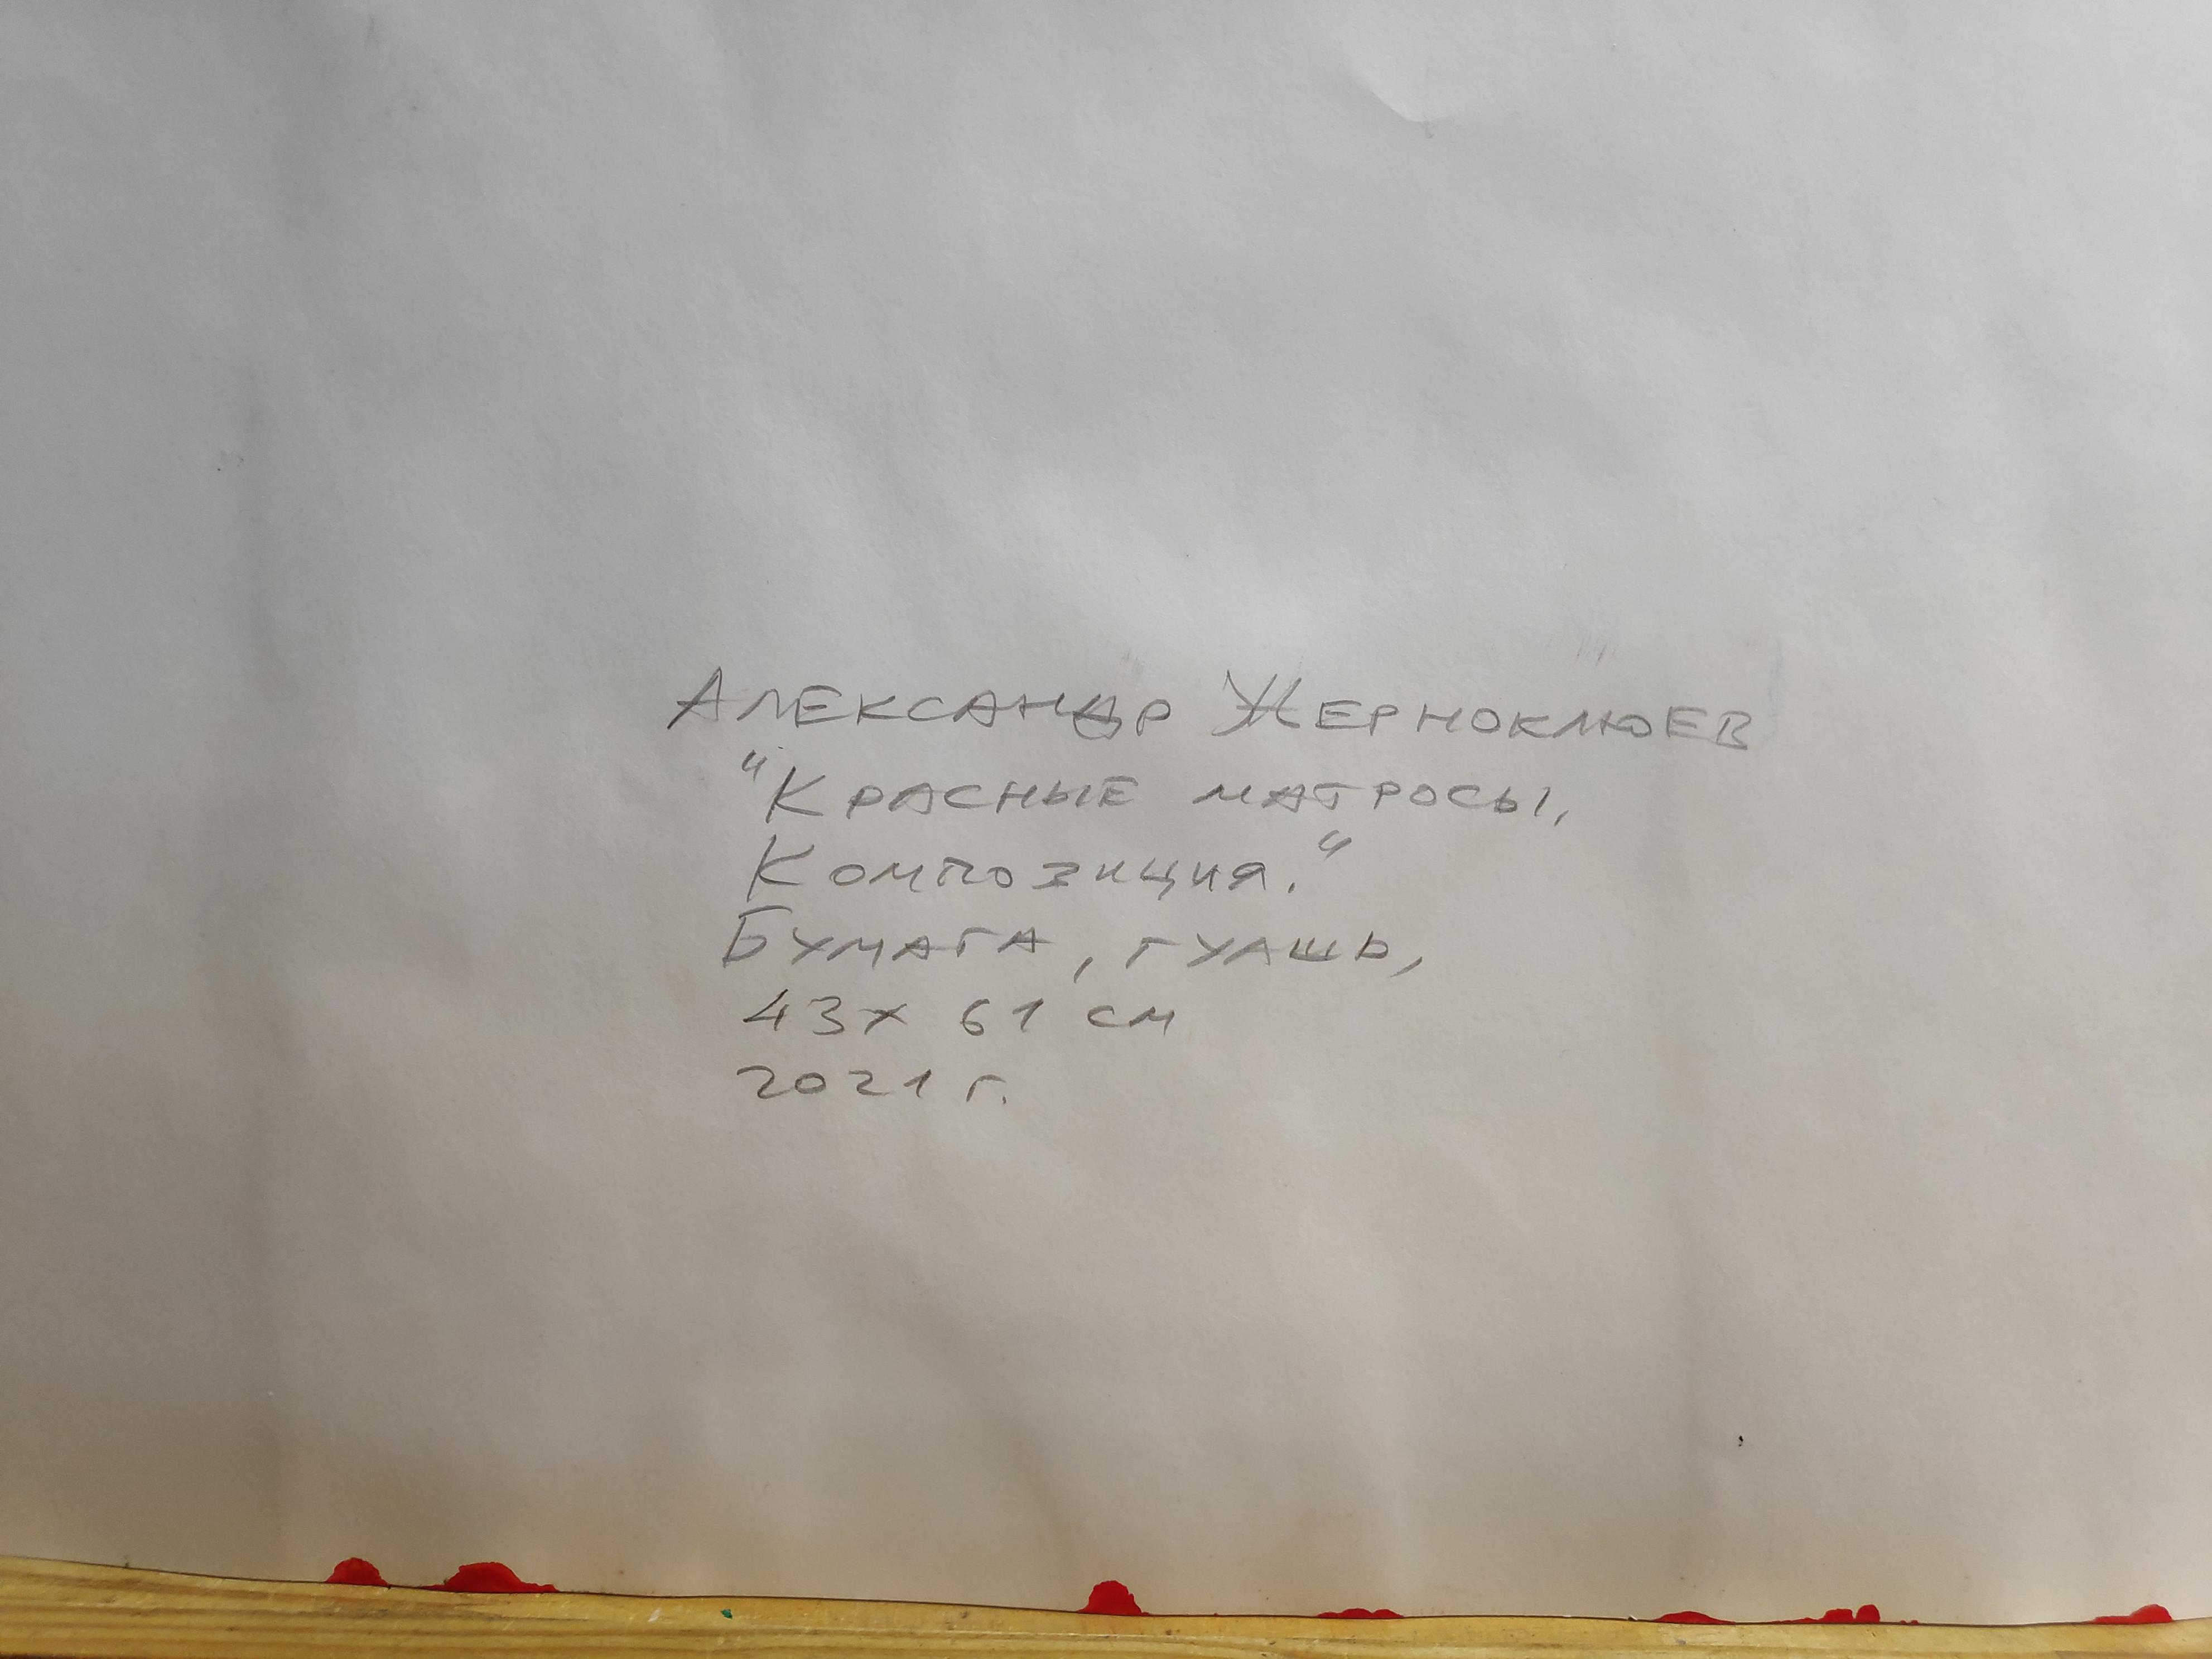 Александр Жерноклюев
"Красные матросы,
Композиция."
Бумага, гуашь,
43х 61 см
2021 г.